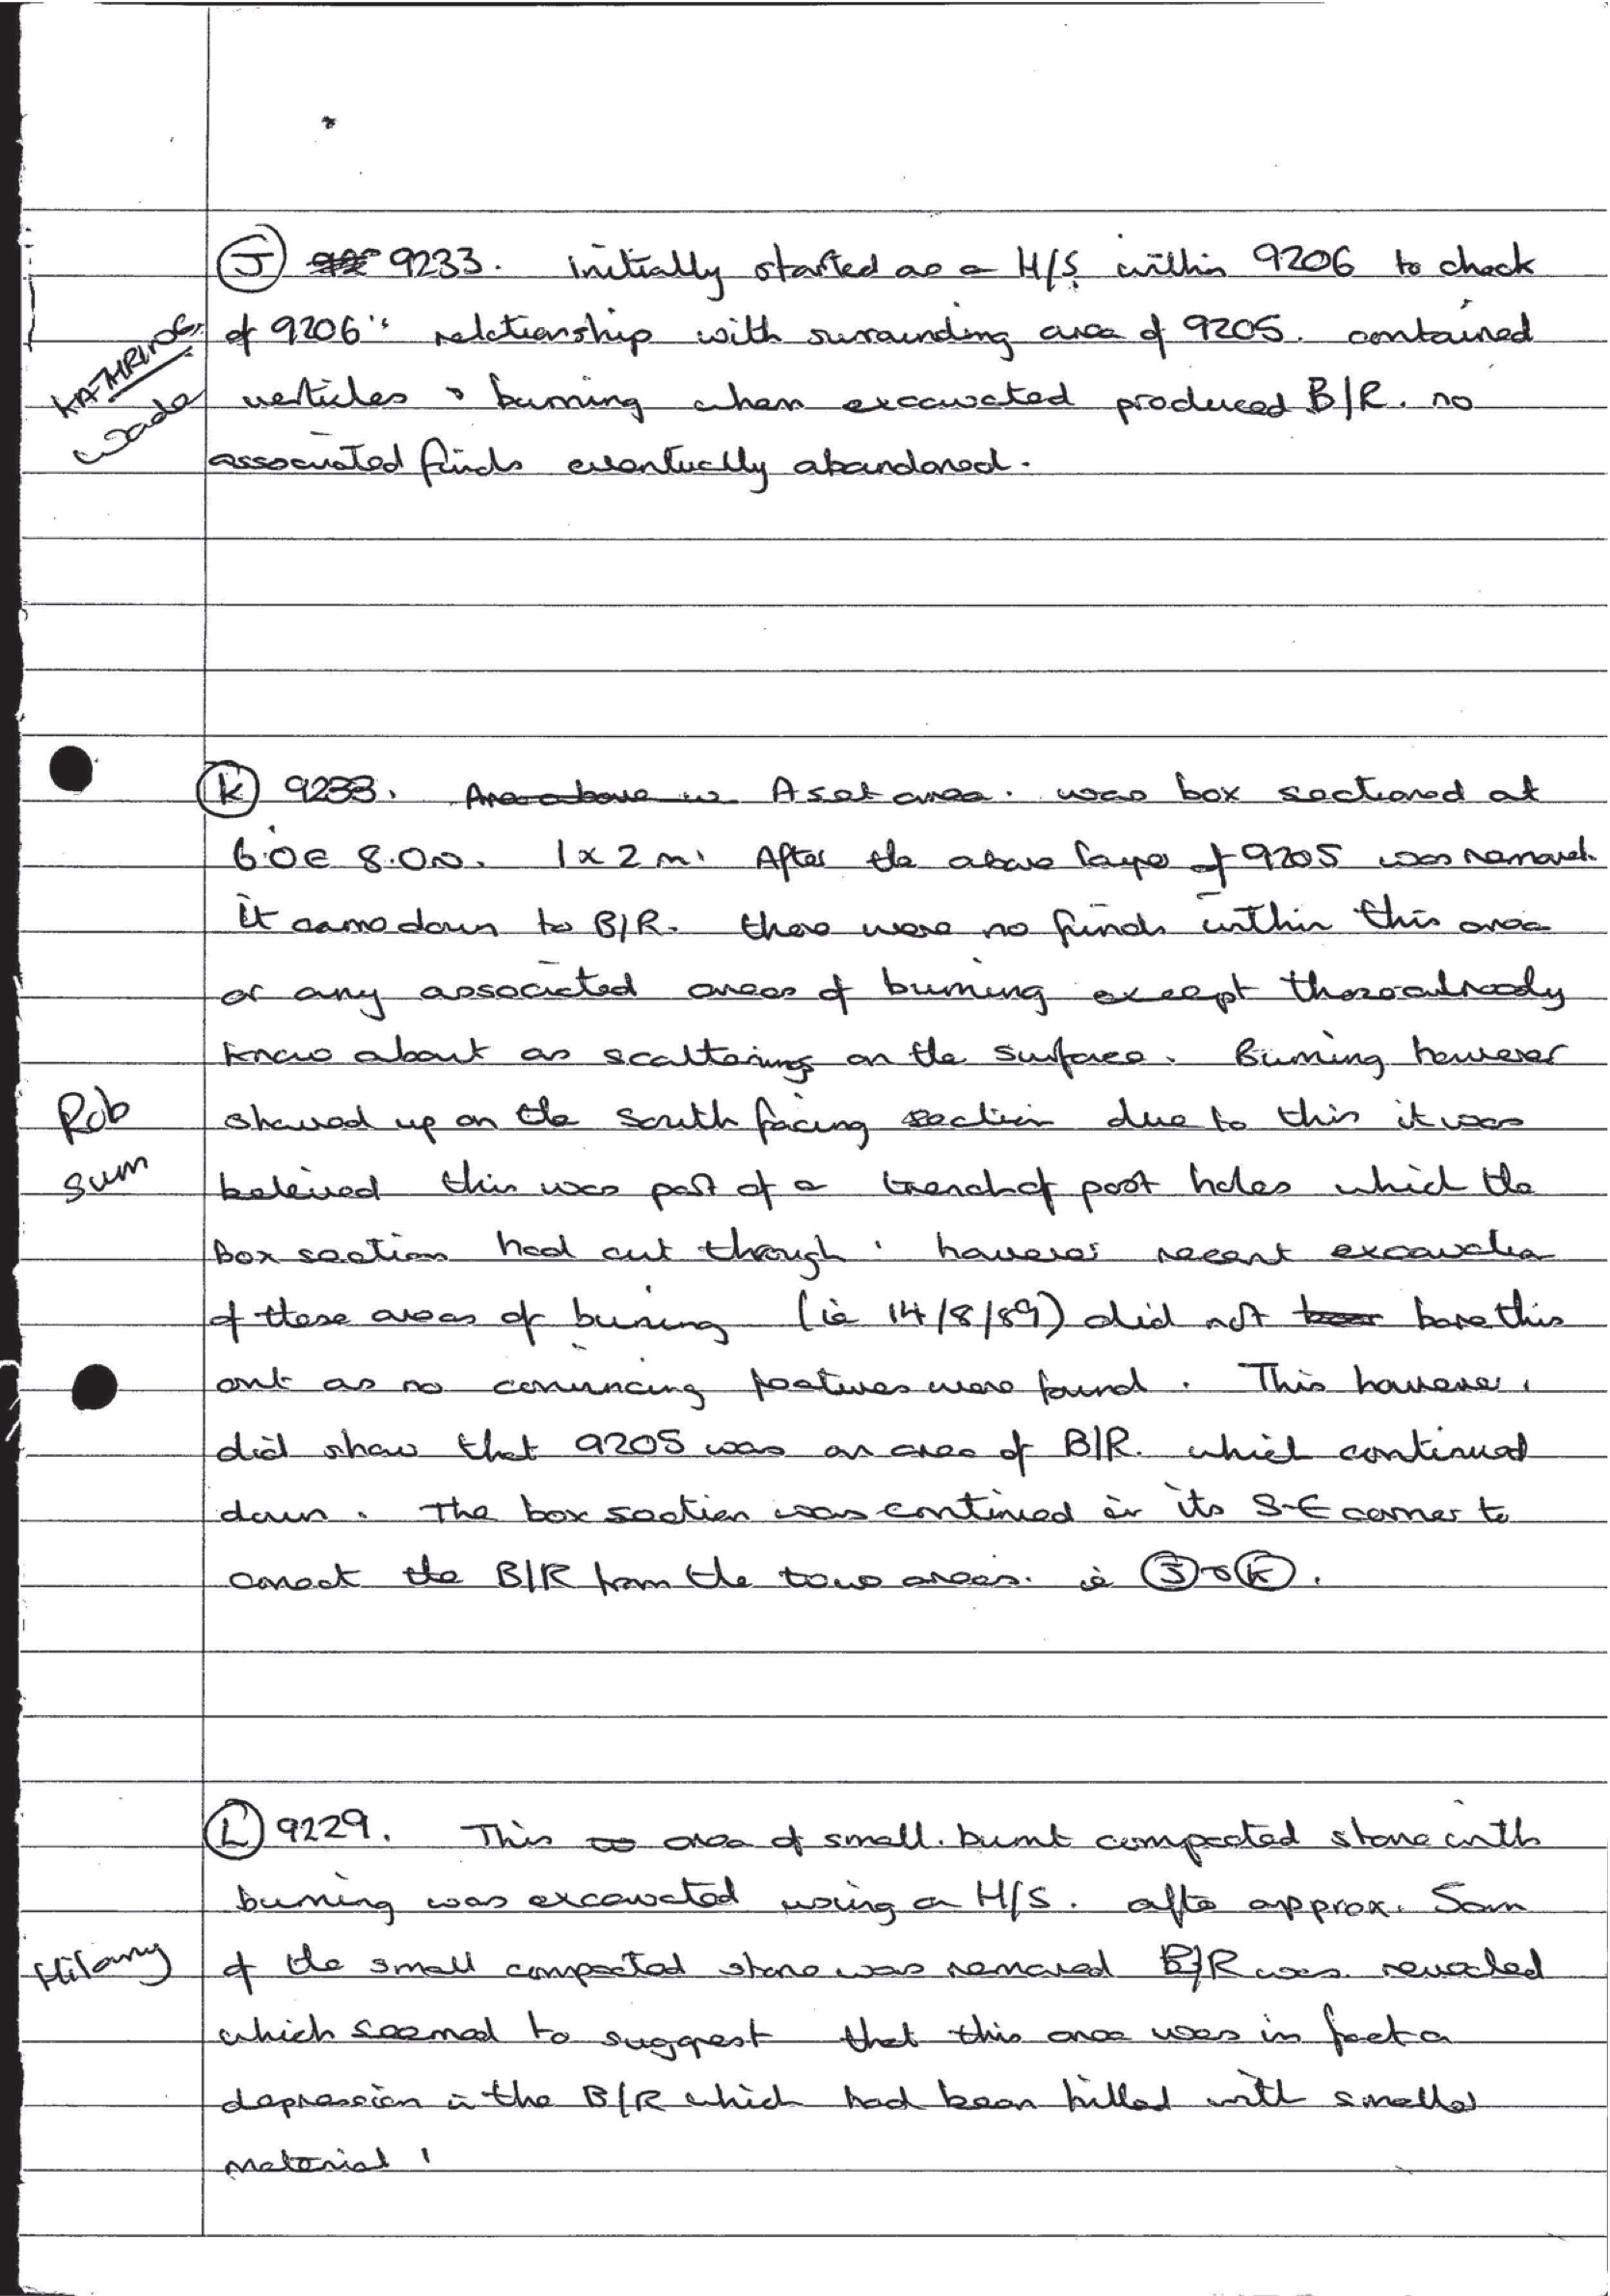 J 9233. initially started as a H/S within 9206 to check
of 9206's relationship with surrounding area of 9205. contained
KATHRINE
Wade
verticles & burning when excavated produced B/R. no
associated finds eventually abandoned.
K 9233. Area above A set area. was box sectioned at
6.0E 8.0N. 1 x 2 m. After the above layer of 9205 was removed.
it came down to B/R. there were no finds within this area
or any associated areas of burning except those already
know about as scatterings on the surface. Burning however
Rob
Sum
showed up on the south facing section due to this it was
beleived this was part of a trench of post holes which the
box section had cut through. however recent excavation
of these areas of burning (ie 14/8/89) did not bare this
out as no convincing features were found. This however.
did show that 9205 was an area of B/R. which continued
down. The box section was continued in its S-E corner to
conect the B/R from the two areas. ie J & K.
L 9229. This area of small. burnt compacted stone with
burning was excavated using a H/S. after approx. 5cm
Hilary
of the small compacted stone was removed B/R was revealed
which seemed to suggest that this area was in fact a
depression in the B/R which had been filled with smaller
material!